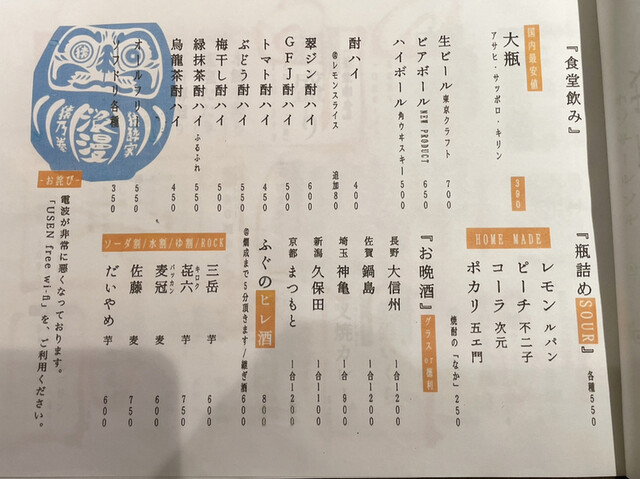 『食堂飲み』
国内最安値
大瓶 390
アサヒ・サッポロ・キリン
生ビール 東京クラフト 700
ビアボール NEW PRODUCT 650
ハイボール 角ウヰスキー 500
酎ハイ 400
@レモンスライス 追加80
翠ジン酎ハイ 600
GFJ酎ハイ 500
トマト酎ハイ 450
ぶどう酎ハイ 550
梅干し酎ハイ 500
緑抹茶酎ハイ ふるふれ 550
烏龍茶酎ハイ 450
オールフリー 550
ソフドリ各種 350
浪漫
『瓶詰めSOUR』 各種550
HOME MADE
レモン ルパン
ピーチ 不二子
コーラ 次元
ポカリ 五ェ門
焼酎の「なか」 250
『お晩酒』 グラス or 徳利
長野 大信州 一合1200
佐賀 鍋島 一合1200
埼玉 神亀 一合900
新潟 久保田 一合1100
京都 まつもと 一合1200
ふぐのヒレ酒 800
@燗成まで5分頂きます/継ぎ酒600
ソーダ割/水割/ゆ割/ROCK
三岳 芋 600
㐂六 キロク 芋 750
麦冠 バッカン 麦 600
佐藤 麦 750
だいやめ 芋 600
-お詫び-
電波が非常に悪くなっております。
「USEN free wi-fi」を、ご利用ください。